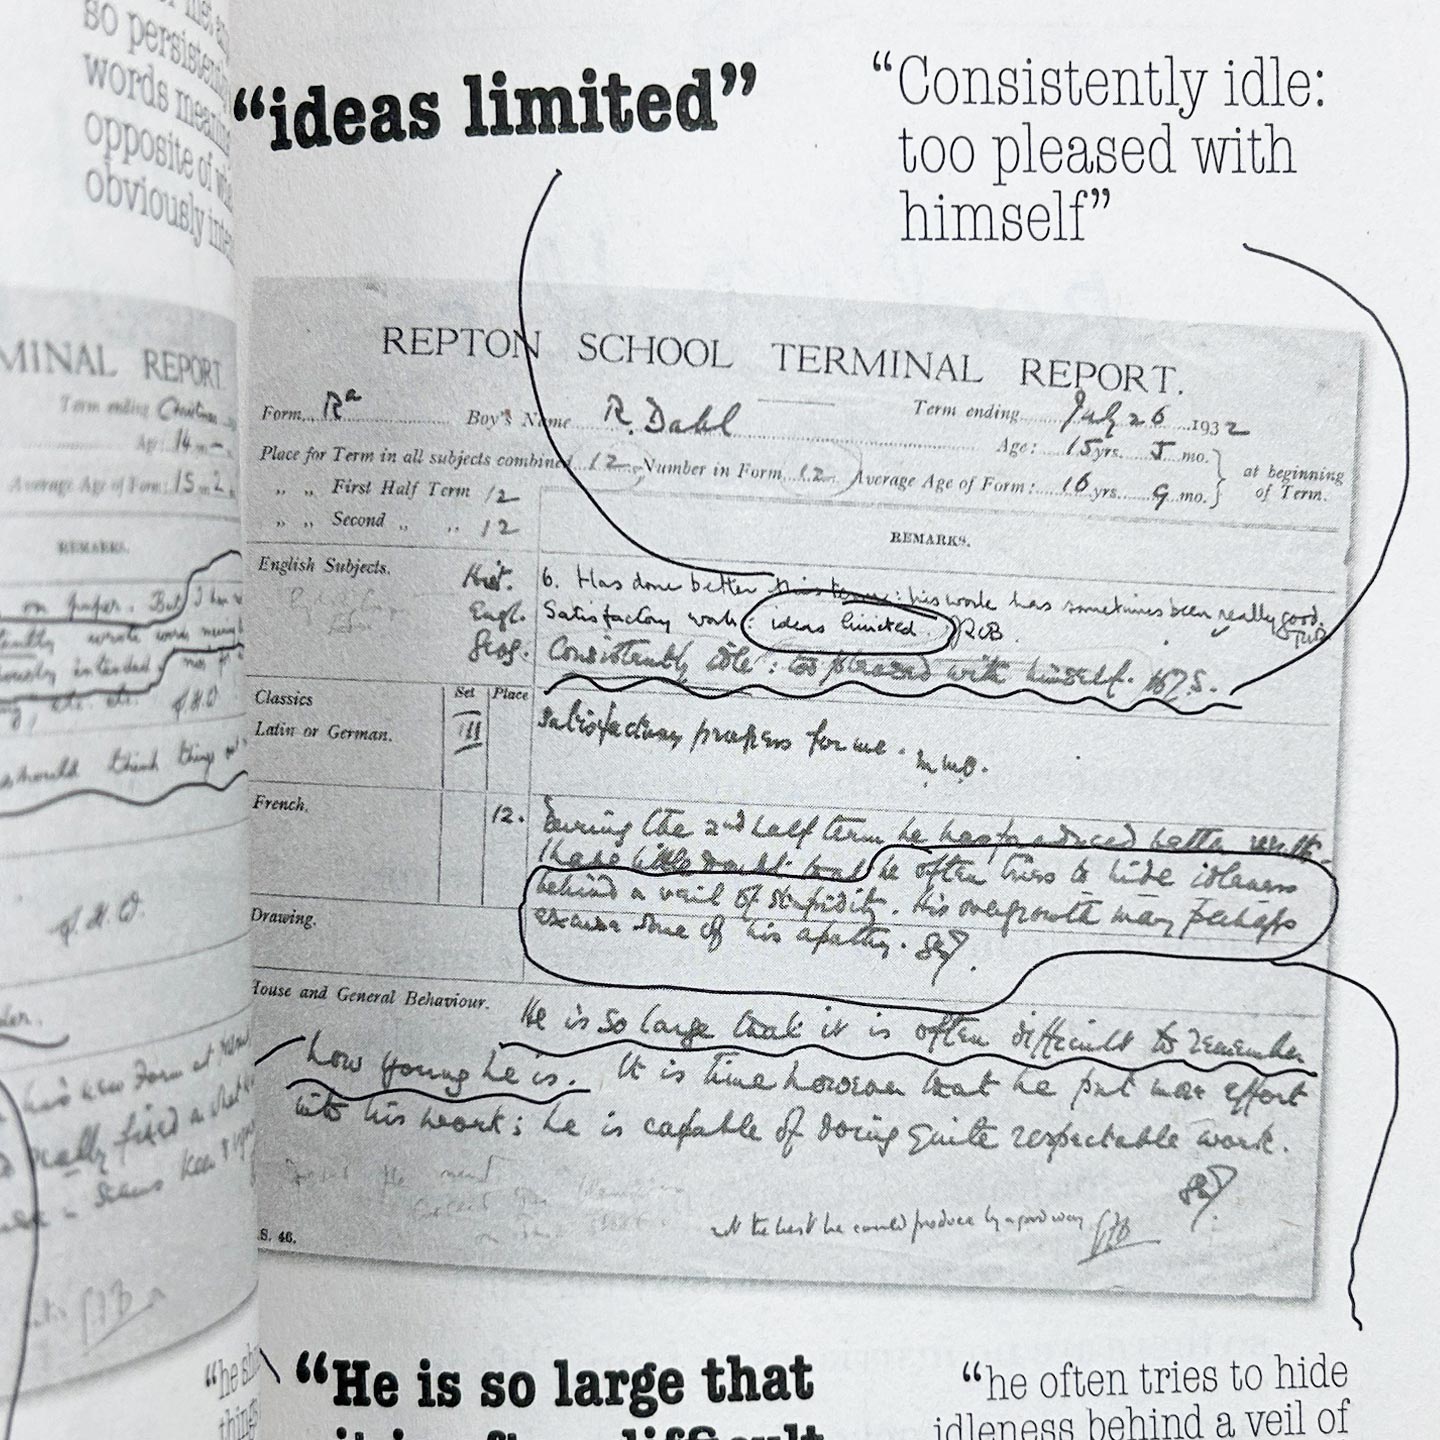 so persistently
words meaning
opposite of
obviously
MINAL REPORT.
Term ending Christmas
Age 14
Average Age of Form: 15 2
REMARKS.
on paper. But I have
wrote words meaning
intended
etc. etc.
should think things
really fixed a
"he
things
"ideas limited"
"Consistently idle:
too pleased with
himself"
REPTON SCHOOL TERMINAL REPORT.
Form Ra Boy's Name R. Dahl Term ending July 26 1932
Age: 15 yrs. 5 mo. at beginning
Place for Term in all subjects combined 12 Number in Form 12 Average Age of Form: 16 yrs. 9 mo. of Term.
" " First Half Term 12
" " Second " " 12
REMARKS.
English Subjects. Hist. 6. Has done better this term: his work has sometimes been really good.
Engl. Satisfactory work: ideas limited. RCB.
Geog. Consistently idle: too pleased with himself.
Classics Set Place
Latin or German. III Satisfactory progress for me.
French. 12. During the 2nd half term he has produced better results.
I have little doubt that he often tries to hide idleness
behind a veil of stupidity. His overgrowth may perhaps
Drawing. excuse some of his apathy.
House and General Behaviour. He is so large that it is often difficult to remember
how young he is. It is time however that he put more effort
into his work; he is capable of doing quite respectable work.
the best he could produce by a good way
S. 46.
"He is so large that
it is often difficult
"he often tries to hide
idleness behind a veil of